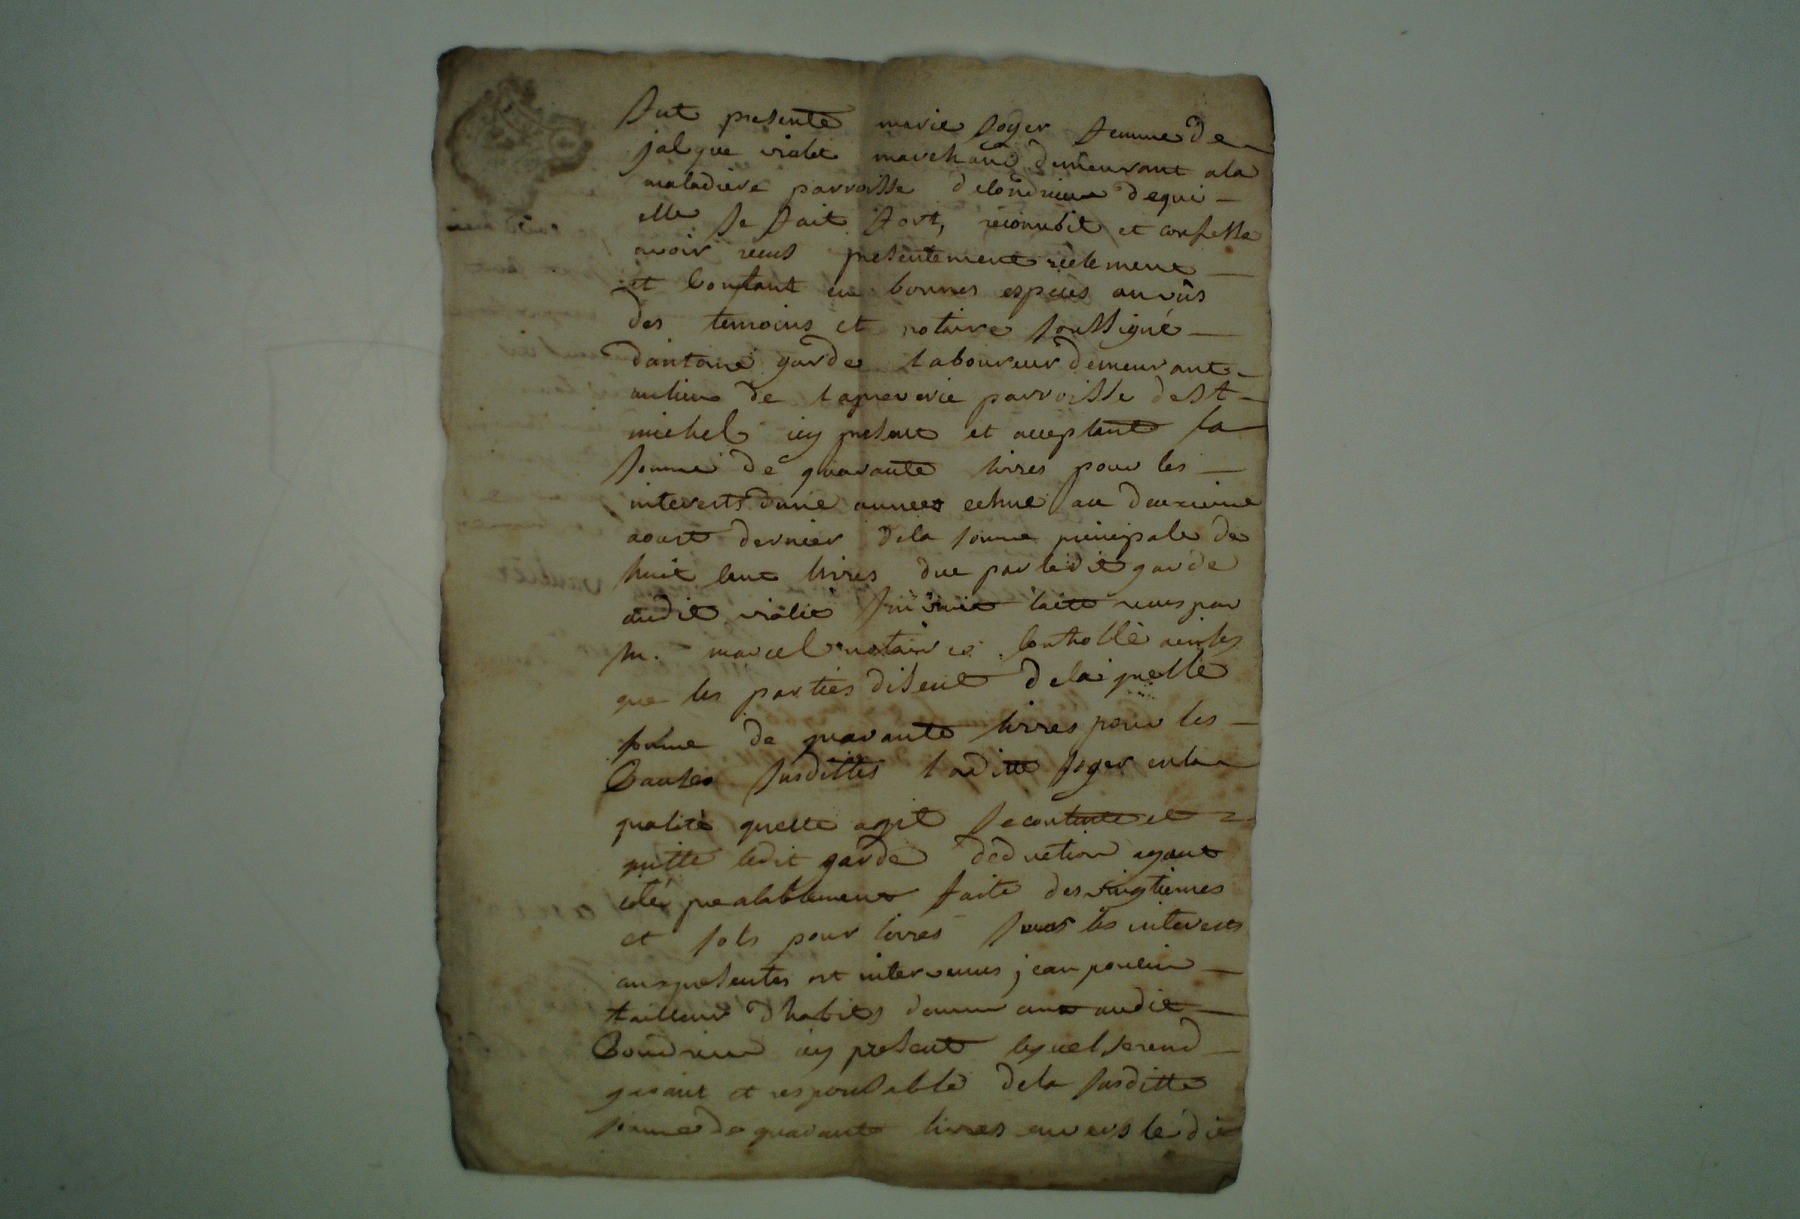 fut presente marie soger femme de
jalque violet marchand demeurant a la
maladiere parroisse de Condrieu de qui
elle se fait fort, reconnoit et confesse
avoir recus presentement reelement
et Contant en bonnes especes au vus
des temoins et notaire soussigné
dantoine garde laboureur demeurant
au lieu de parroisse de St
michel icy present et acceptant la
somme de quarante livres pour les
interests dune années echue au deuxieme
aoust dernier de la somme principale de
huit Cent livres due par ledit garde
audit violet recus par
m. marcel notaire Controllé ainsy
que les parties disent de laquelle
somme de quarante livres pour les
Causes susdittes laditte soger en la
qualité quelle agit se contente et
quitte ledit garde deduction ayant
eté prealablement faite des vingtiemes
et sols pour livres sur les interests
aux presentes est intervenus jean poulin
tailleur dhabits demeurant audit
Condrieu icy present lequel se rend
garant et responsable de la susditte
somme de quarante livres envers le dit